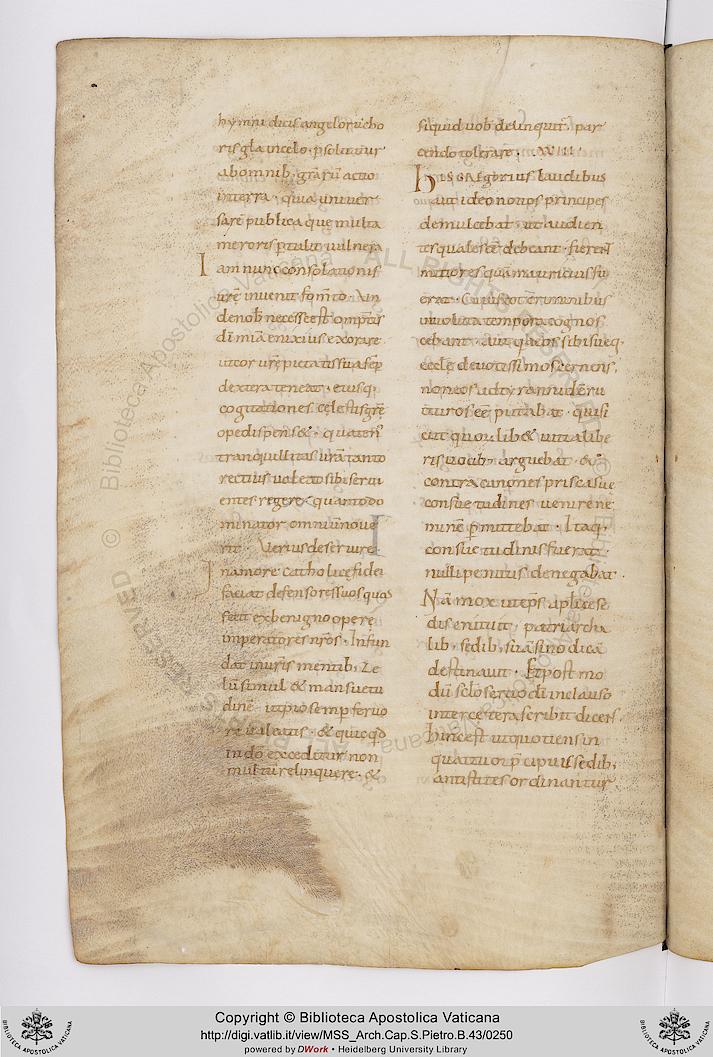 hymnu dicis angelorū cho
ris gła incelo ·
abomnib · grarū actio
interra · quia univer
sarē publica que multa
meroris ptulit vulnera
Iam nunc consolationis
urē invenit fom̄to · Un
denob necesse est omptis
dī miā enixius exorare
utcor urē pietatis sua sēp
dextera teneat · eiusq
cogitationes celestis grē
ope dispens& · quaten
tranquillitas urā tanto
rectius valeat sibi servi
entes regere · quantodo
minator omniū nove
rit · Verius deservire
In amore catholice fidei
faciat defensores suos quos
fecit exbenigno opere
imperatores nr̄os · Infun
dat inurīs mentib, Ze
lū simul & mansuetu
dinē · ut pio semp fervo
re valeatis · & quicqd
indō exceditur non
multū relinquere · &
siquid vob delinquit · par
cendo tolerare ·
his Gregorius laudibus
aut ideo novos principes
demulcebat · ut audien
tes quales eē debeant · fierent
mitiores quā mauricius fu
erat · Cuius
voluta tempora cognos
cebant · Aut quia hos sibi suiq
eccłe devotissimos cernens,
non eos ad tyrannidē ru
ituros eē putabat · quasi
cut quovlib& vitia libe
ris vocib, arguebat · &
contra cunctales priscasve
consuetudines venire ne
minē pmittebat · Itaq,
consuetudinis fuerat ·
nulli penitus denegabat ·
Nā mox ut eps aplice se
dis enituit · patriarcha
lib, sedib, suā sino dicā
destinavit · Et post mo
dū
intercetera scribit dicens,
hinc est ut quotiens in
quattuor p̄cipuis sedib,
antistites ordinantur
ALL RIGHTS RESERVED
© Biblioteca Apostolica Vaticana
Copyright © Biblioteca Apostolica Vaticana
http://digi.vatlib.it/view/MSS_Arch.Cap.S.Pietro.B.43/0250
powered by DWork • Heidelberg University Library